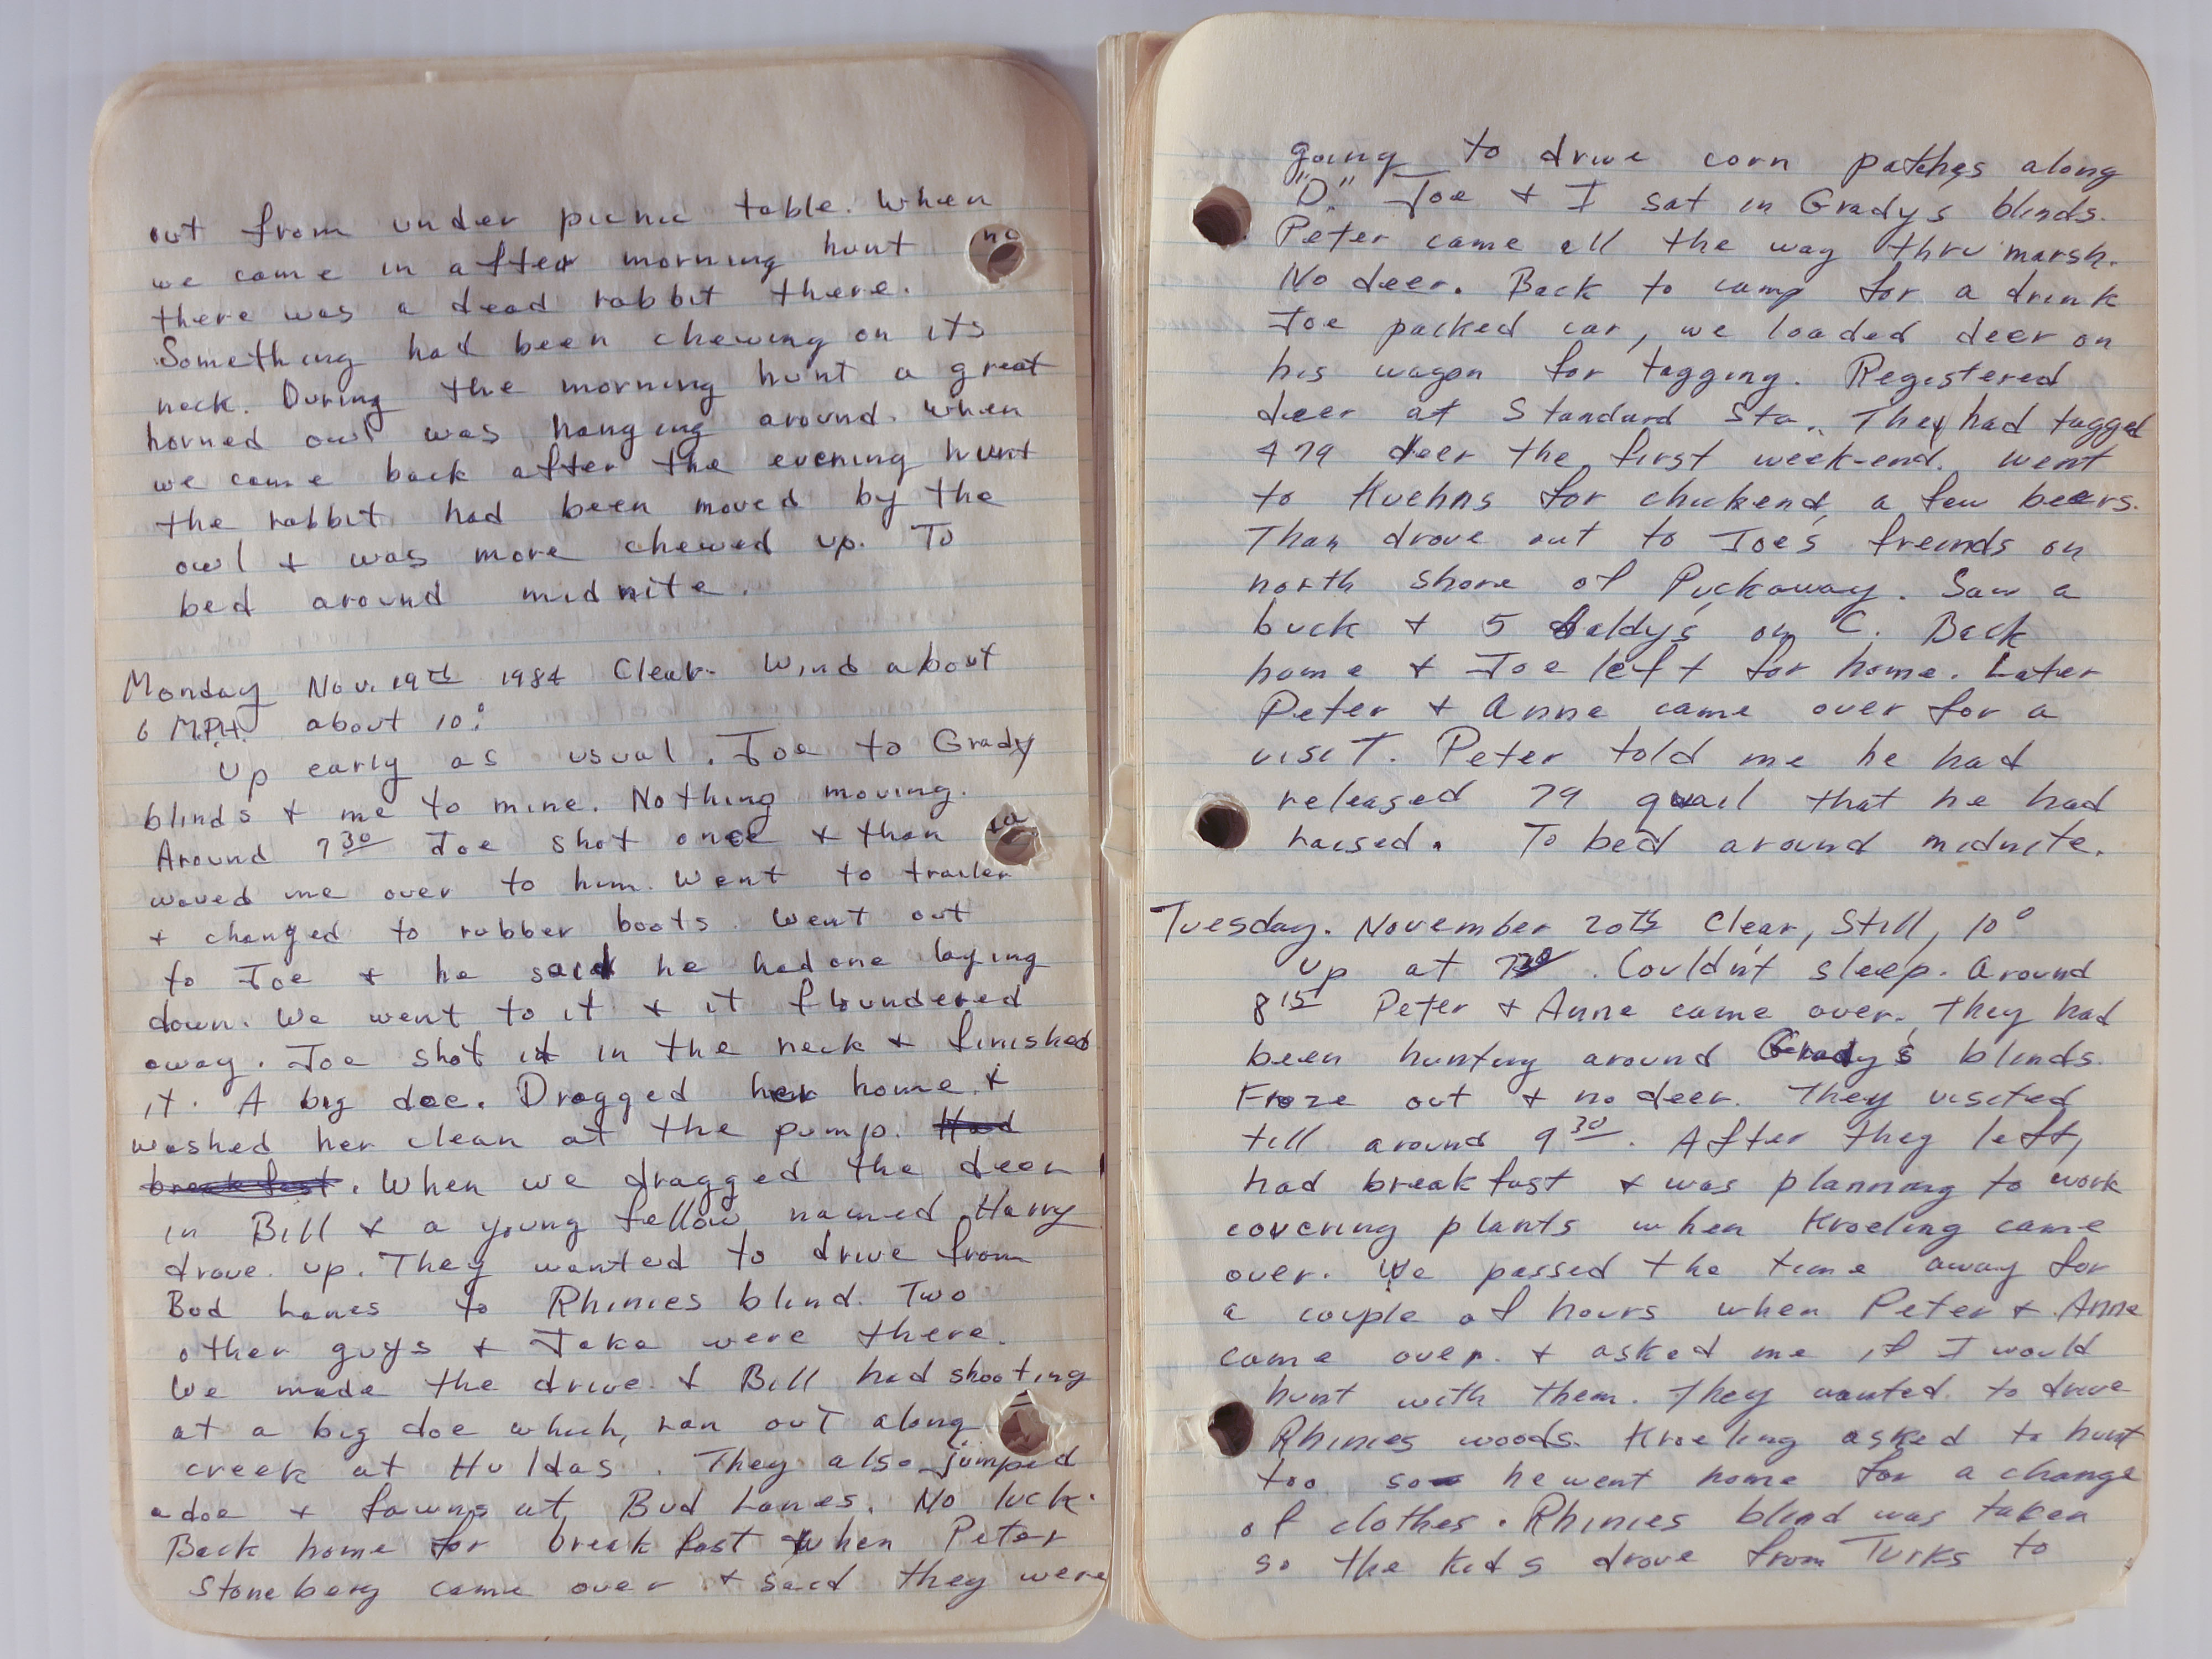 out from under picnic table. When
we came in after morning hunt
there was a dead rabbit there.
Something had been chewing on its
neck. During the morning hunt a great
horned owl was hanging around. When
we came back after the evening hunt
the rabbit had been moved by the
owl & was more chewed up. To
bed around midnite.
Monday Nov. 19th 1984 Clear. Wind about
6 M.P.H. about 10°
Up early as usual. Joe to Grady
blinds & me to mine. Nothing moving.
Around 7 30 Joe shot once & than
waved me over to him. Went to trailer
& changed to rubber boots. Went out
to Joe & he said he had one laying
down. We went to it & it floundered
away. Joe shot it in the neck & finished
it. A big doe. Dragged her home &
washed her clean at the pump. Had
breakfast. When we dragged the deer
in Bill & a young fellow named Harry
drove up. They wanted to drive from
Bud Lanes to Rhinies blind. Two
other guys & Jake were there.
We made the drive & Bill had shooting
at a big doe which, ran out along
creek at Huldas. They also jumped
a doe & fawns at Bud Lanes. No luck.
Back home for breakfast when Peter
Stoneberg came over & said they were
going to drive corn patches along
"D." Joe & I sat in Gradys blinds.
Peter came all the way thru marsh.
No deer. Back to camp for a drink
Joe packed car, we loaded deer on
his wagon for tagging. Registered
deer at Standard Sta. They had tagged
479 deer the first week-end. Went
to Kuehns for chicken & a few beers.
Than drove out to Joe's freinds on
north shore of Puckaway. Saw a
buck & 5 baldy's on C. Back
home & Joe left for home. Later
Peter & Anne came over for a
visit. Peter told me he had
released 79 quail that he had
raised. To bed around midnite.
Tuesday. November 20th Clear, Still, 10°
Up at 7 30. Couldn't sleep. Around
8 15 Peter & Anne came over. They had
been hunting around Grady's blinds.
Froze out & no deer. They visited
till around 9 30. After they left,
had breakfast & was planning to work
covering plants when Kroeling came
over. We passed the time away for
a couple of hours when Peter & Anne
came over & asked me if I would
hunt with them. They wanted to drive
Rhinies woods. Kroeling asked to hunt
too so he went home for a change
of clothes. Rhinies blind was taken
so the kids drove from Turks to